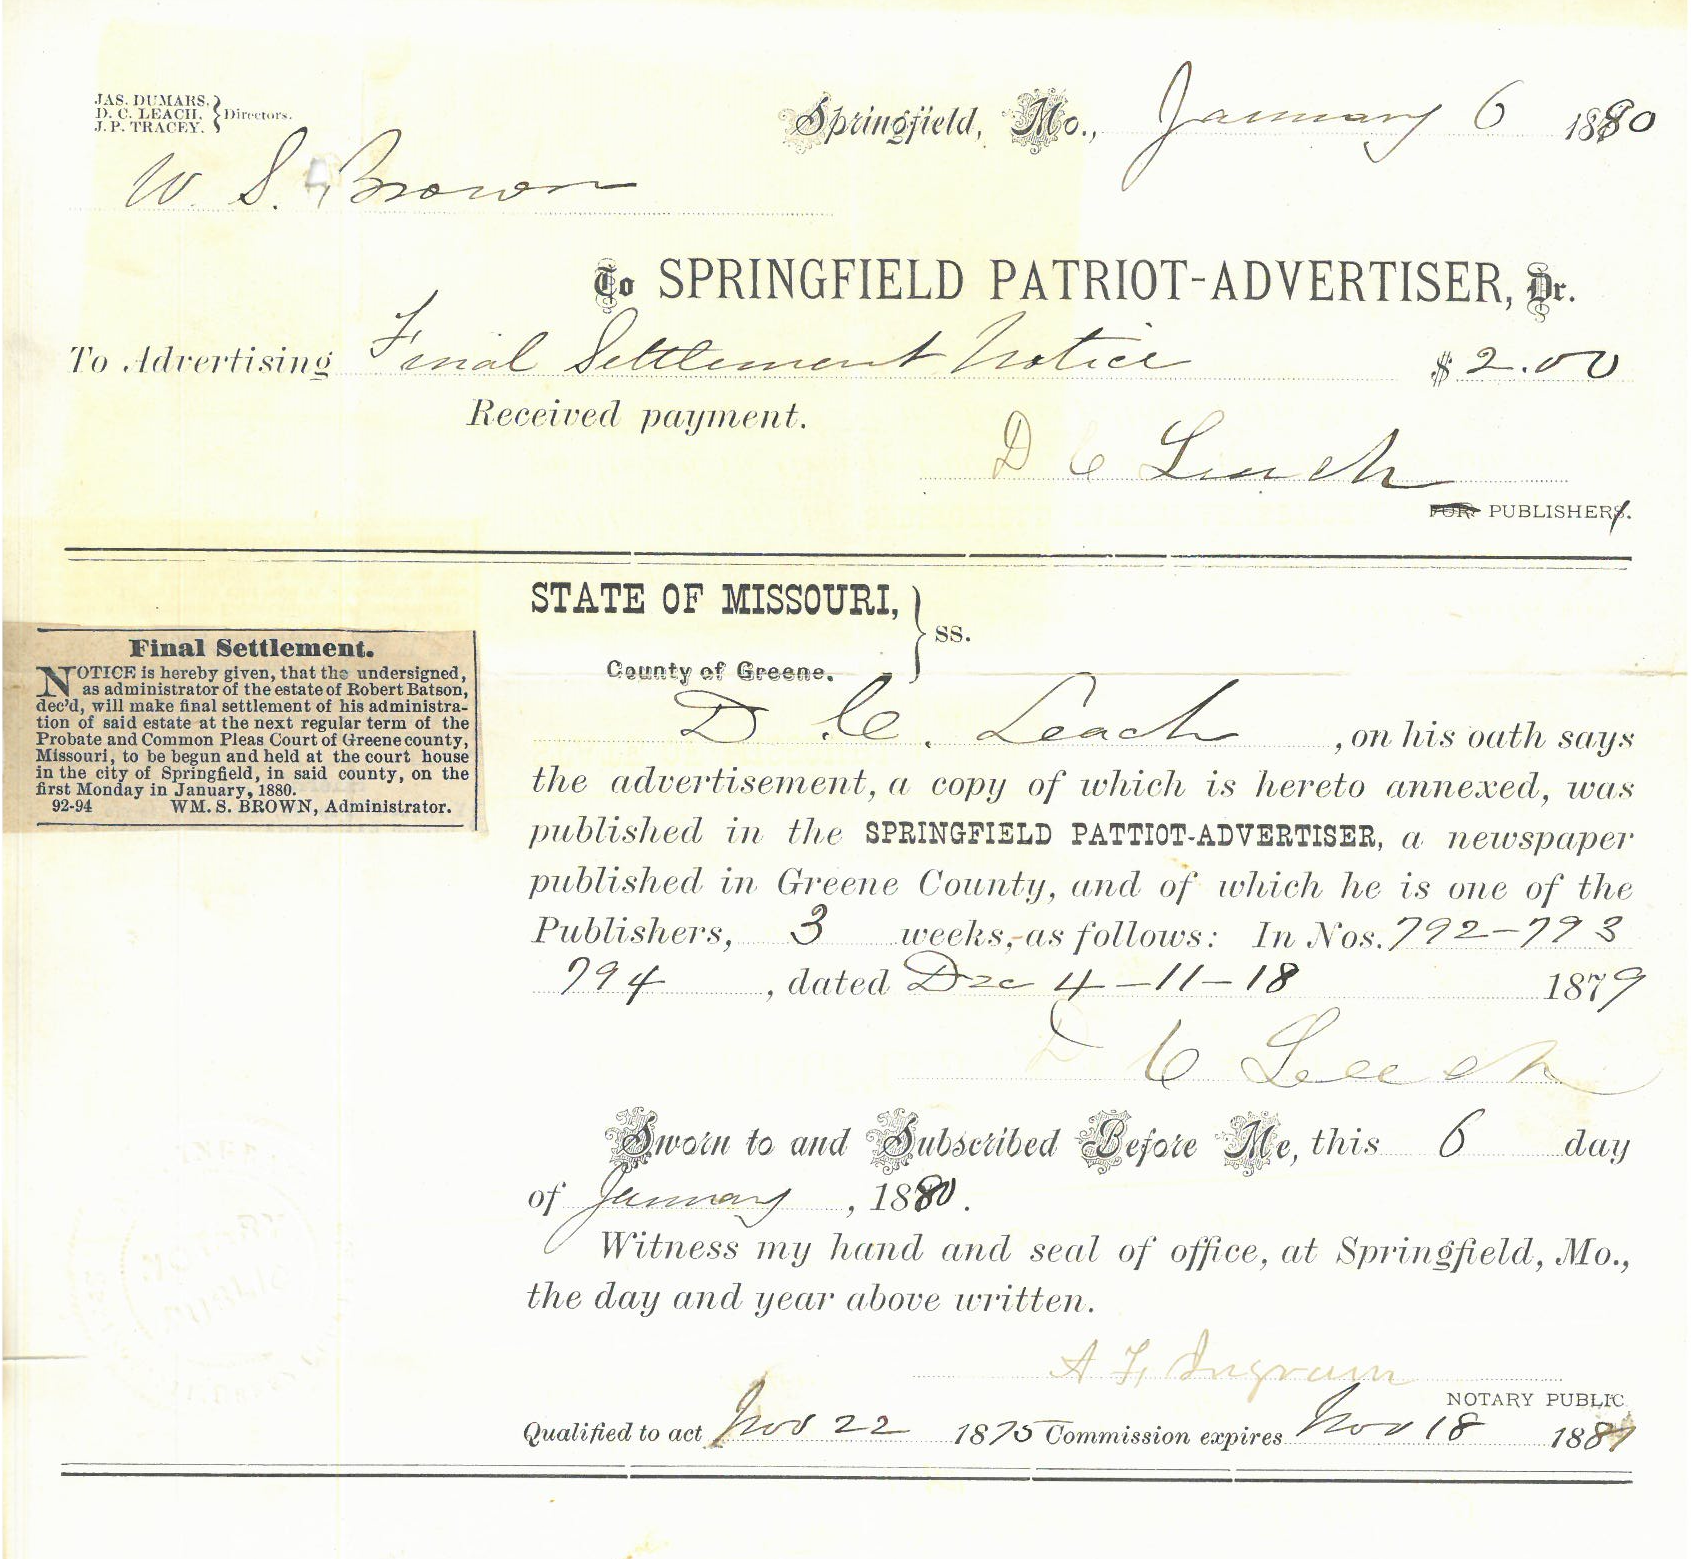 JAS. DUMARS,
D. C. LEACH, } Directors.
J. P. TRACEY.
Springfield, Mo., January 6 1880
W. S. Brown
To SPRINGFIELD PATRIOT-ADVERTISER, Dr.
To Advertising Final Settlement Notice $ 2.00
Received payment.
D C Leach
FOR PUBLISHERS.
STATE OF MISSOURI, } ss.
County of Greene.
D. C. Leach, on his oath says
the advertisement, a copy of which is hereto annexed, was
published in the SPRINGFIELD PATTIOT-ADVERTISER, a newspaper
published in Greene County, and of which he is one of the
Publishers, 3 weeks, as follows: In Nos. 792-793
794, dated Dec 4-11-18 1879
D C Leach
Sworn to and Subscribed Before Me, this 6 day
of January, 1880.
Witness my hand and seal of office, at Springfield, Mo.,
the day and year above written.
A F Ingram
NOTARY PUBLIC
Qualified to act Nov 22 1875 Commission expires Nov 18 1881
Final Settlement.
NOTICE is hereby given, that the undersigned,
as administrator of the estate of Robert Batson,
dec'd, will make final settlement of his administra-
tion of said estate at the next regular term of the
Probate and Common Pleas Court of Greene county,
Missouri, to be begun and held at the court house
in the city of Springfield, in said county, on the
first Monday in January, 1880.
92-94 WM. S. BROWN, Administrator.
NOTARY
PUBLIC